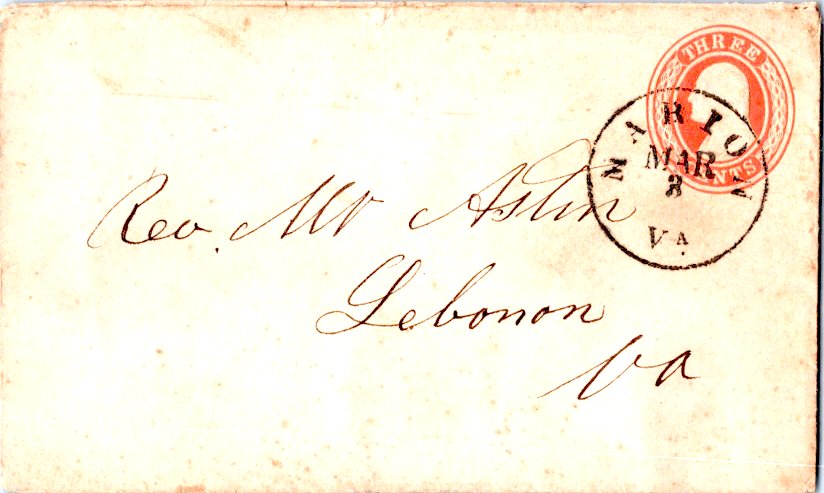 THREE
CENTS
MARION
MAR
3
VA.
Rev. Mr Aslin
Lebonon
Va